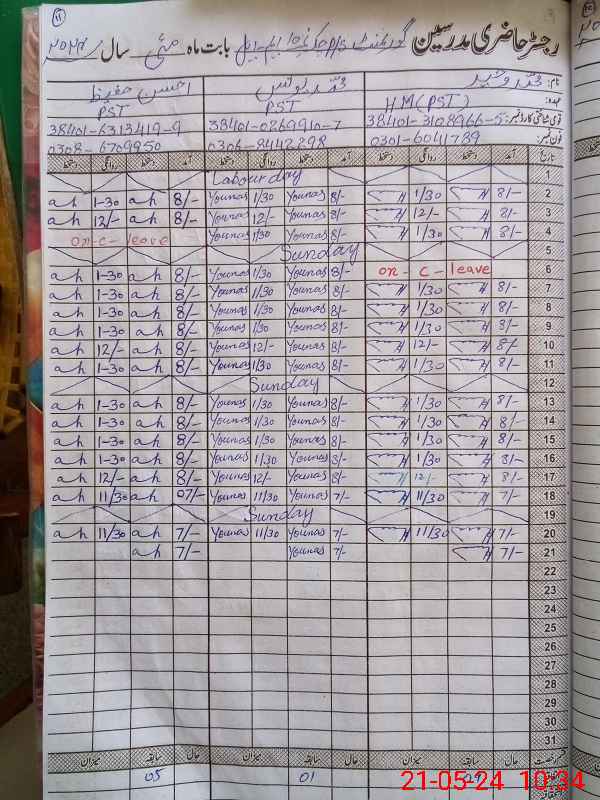 رجسٹر حاضری مدرسین گورنمنٹ بابت ماہ مئی سال ۲۰۲۴
نام: احسن حفیظ
عہدہ: HM (PST) PST PST
قومی شناختی کارڈ نمبر: 38401-3108966-5 38401-0269910-7 38401-6313419-9
فون نمبر: 0301-6041789 0306-8442298 0308-6709950
تاریخ آمد دستخط روانگی دستخط آمد دستخط روانگی دستخط آمد دستخط روانگی دستخط
1 Labour day
ah 1-30 ah 8/- Younas 1/30 Younas 8/- 1/30 8/- 2
ah 12/- ah 8/- Younas 12/- Younas 8/- 12/- 8/- 3
on-c-leave Younas 1/30 Younas 8/- 1/30 8/- 4
Sunday 5
ah 1-30 ah 8/- Younas 1/30 Younas 8/- on - c - leave 6
ah 1-30 ah 8/- Younas 1/30 Younas 8/- 1/30 8/- 7
ah 1-30 ah 8/- Younas 1/30 Younas 8/- 1/30 8/- 8
ah 1-30 ah 8/- Younas 1/30 Younas 8/- 1/30 8/- 9
ah 12/- ah 8/- Younas 12/- Younas 8/- 12/- 8/- 10
ah 1-30 ah 8/- Younas 1/30 Younas 8/- 1/30 8/- 11
Sunday 12
ah 1-30 ah 8/- Younas 1/30 Younas 8/- 1/30 8/- 13
ah 1-30 ah 8/- Younas 1/30 Younas 8/- 1/30 8/- 14
ah 1-30 ah 8/- Younas 1/30 Younas 8/- 1/30 8/- 15
ah 1-30 ah 8/- Younas 1/30 Younas 8/- 1/30 8/- 16
ah 12/- ah 8/- Younas 12/- Younas 8/- 12/- 8/- 17
ah 11/30 ah 07/- Younas 11/30 Younas 7/- 11/30 7/- 18
Sunday 19
ah 11/30 ah 7/- Younas 11/30 Younas 7/- 11/30 7/- 20
ah 7/- Younas 7/- 7/- 21
22
23
24
25
26
27
28
29
30
31
حال سابقہ میزان حال سابقہ میزان حال سابقہ میزان
01 05
21-05-24 10:34